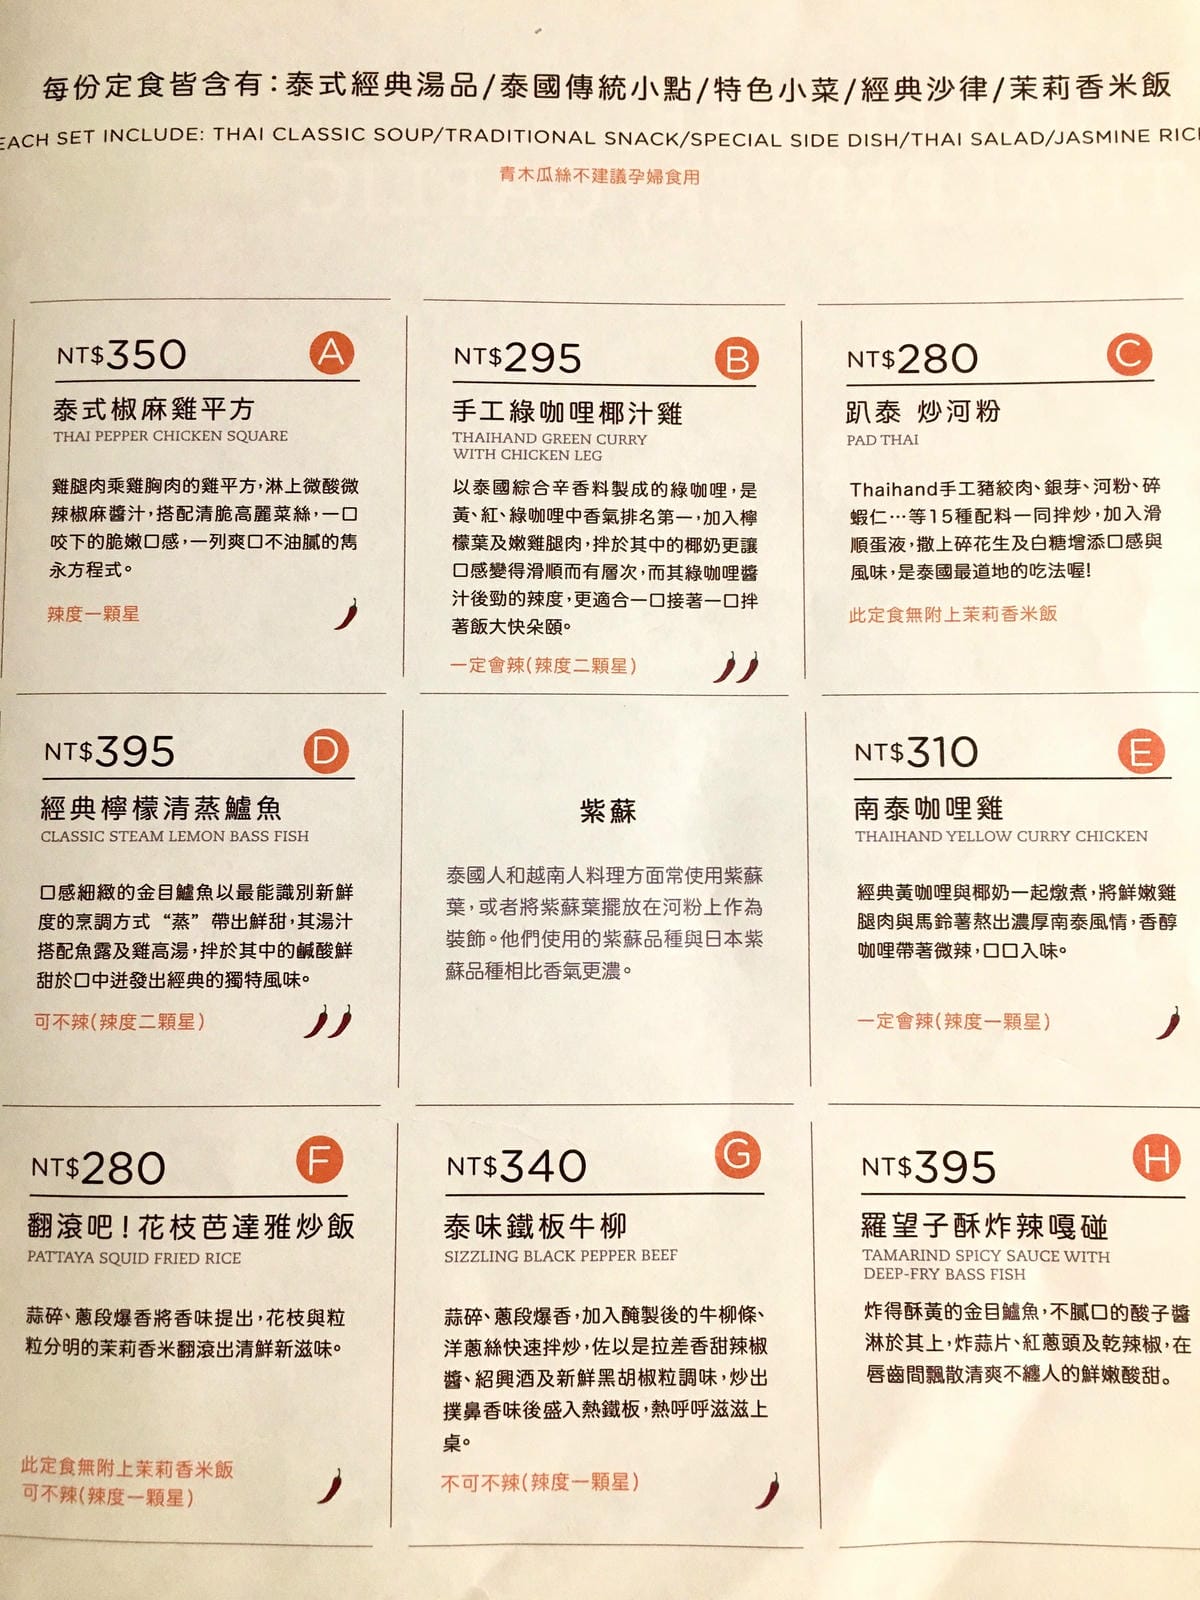 每份定食皆含有：泰式經典湯品/泰國傳統小點/特色小菜/經典沙律/茉莉香米飯
EACH SET INCLUDE: THAI CLASSIC SOUP/TRADITIONAL SNACK/SPECIAL SIDE DISH/THAI SALAD/JASMINE RICE
青木瓜絲不建議孕婦食用
NT$350 A
泰式椒麻雞平方
THAI PEPPER CHICKEN SQUARE
雞腿肉乘雞胸肉的雞平方，淋上微酸微
辣椒麻醬汁，搭配清脆高麗菜絲，一口
咬下的脆嫩口感，一列爽口不油膩的雋
永方程式。
辣度一顆星
NT$295 B
手工綠咖哩椰汁雞
THAIHAND GREEN CURRY
WITH CHICKEN LEG
以泰國綜合辛香料製成的綠咖哩，是
黃、紅、綠咖哩中香氣排名第一，加入檸
檬葉及嫩雞腿肉，拌於其中的椰奶更讓
口感變得滑順而有層次，而其綠咖哩醬
汁後勁的辣度，更適合一口接著一口拌
著飯大快朵頤。
一定會辣(辣度二顆星)
NT$280 C
趴泰 炒河粉
PAD THAI
Thaihand手工豬絞肉、銀芽、河粉、碎
蝦仁…等15種配料一同拌炒，加入滑
順蛋液，撒上碎花生及白糖增添口感與
風味，是泰國最道地的吃法喔!
此定食無附上茉莉香米飯
NT$395 D
經典檸檬清蒸鱸魚
CLASSIC STEAM LEMON BASS FISH
口感細緻的金目鱸魚以最能識別新鮮
度的烹調方式“蒸”帶出鮮甜，其湯汁
搭配魚露及雞高湯，拌於其中的鹹酸鮮
甜於口中迸發出經典的獨特風味。
可不辣(辣度二顆星)
紫蘇
泰國人和越南人料理方面常使用紫蘇
葉，或者將紫蘇葉擺放在河粉上作為
裝飾。他們使用的紫蘇品種與日本紫
蘇品種相比香氣更濃。
NT$310 E
南泰咖哩雞
THAIHAND YELLOW CURRY CHICKEN
經典黃咖哩與椰奶一起燉煮，將鮮嫩雞
腿肉與馬鈴薯熬出濃厚南泰風情，香醇
咖哩帶著微辣，口口入味。
一定會辣(辣度一顆星)
NT$280 F
翻滾吧！花枝芭達雅炒飯
PATTAYA SQUID FRIED RICE
蒜碎、蔥段爆香將香味提出，花枝與粒
粒分明的茉莉香米翻滾出清鮮新滋味。
此定食無附上茉莉香米飯
可不辣(辣度一顆星)
NT$340 G
泰味鐵板牛柳
SIZZLING BLACK PEPPER BEEF
蒜碎、蔥段爆香，加入醃製後的牛柳條、
洋蔥絲快速拌炒，佐以是拉差香甜辣椒
醬、紹興酒及新鮮黑胡椒粒調味，炒出
撲鼻香味後盛入熱鐵板，熱呼呼滋滋上
桌。
不可不辣(辣度一顆星)
NT$395 H
羅望子酥炸辣嘎碰
TAMARIND SPICY SAUCE WITH
DEEP-FRY BASS FISH
炸得酥黃的金目鱸魚，不膩口的酸子醬
淋於其上，炸蒜片、紅蔥頭及乾辣椒，在
唇齒間飄散清爽不纏人的鮮嫩酸甜。